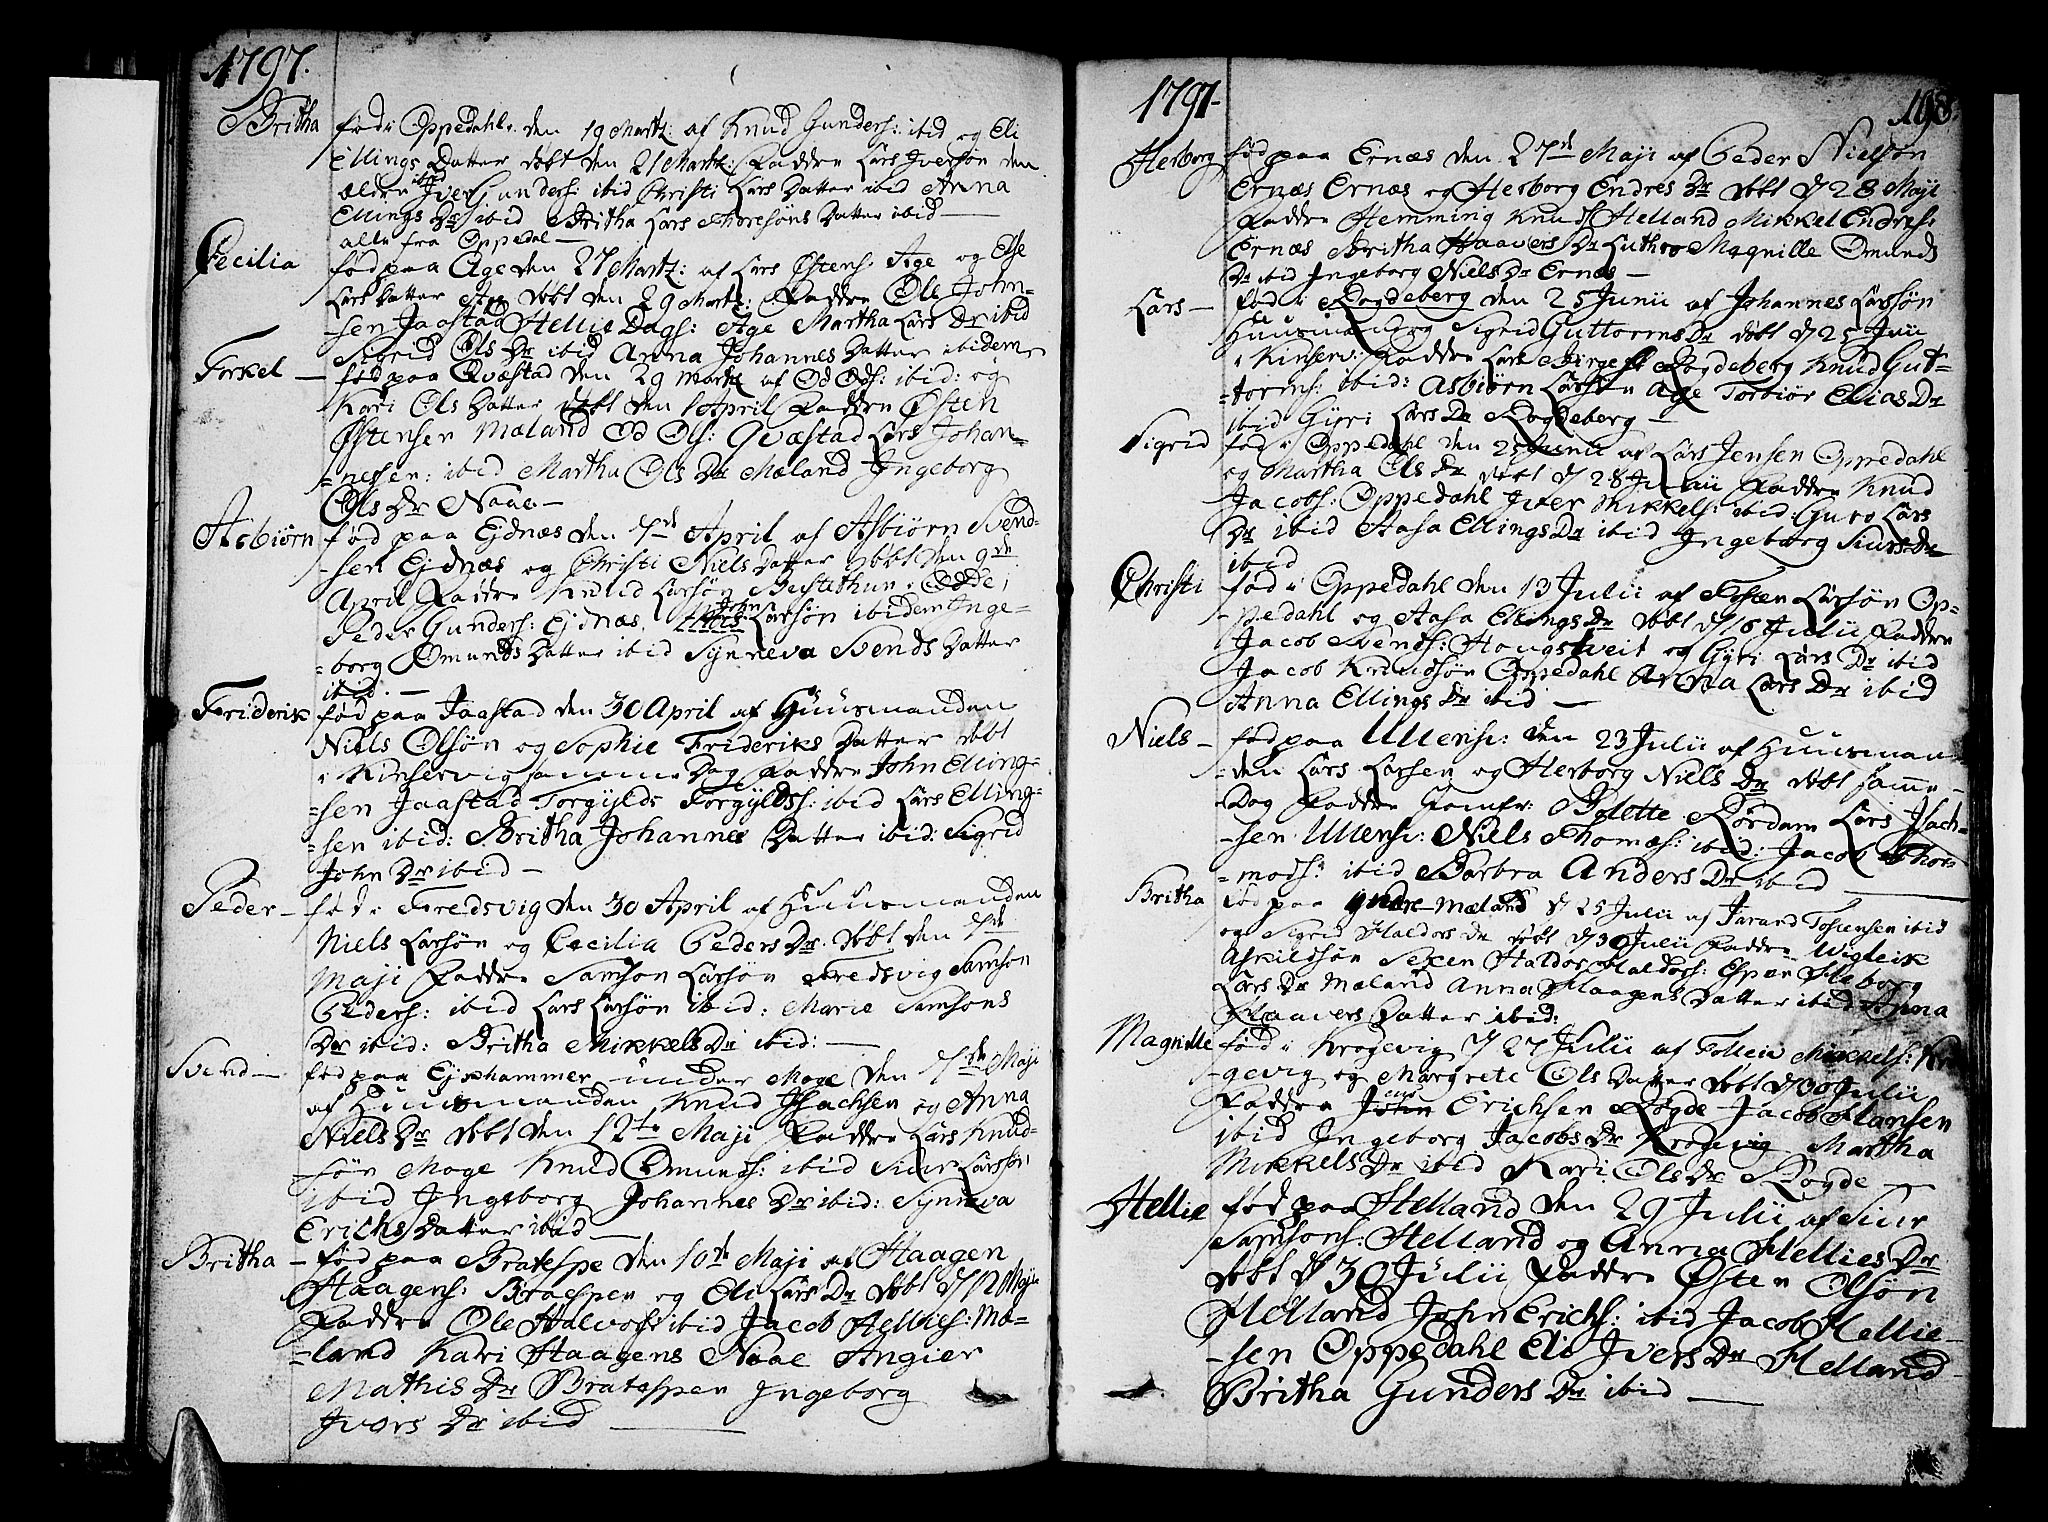 1797.
Britha fød i Oppedahl. den 19 Martz: af Knud Gunders: ibid og Eli
Ellings Datter døbt den 21 Martz: Faddre Lars Iversøn den
ældre ibid Iver Gunders: ibid Christi Lars Datter ibid Anna
Ellings Dr ibid Britha Lars Thoresøns Datter ibid —
alle fra Oppedal —
Cecilia fød paa Age den 27 Martz: af Lars Østens: Age og Else
Lars Datter døbt den 29 Martz: Faddre Ole John-
-sen Jaastad Hellie Dags: Age Martha Lars Dr ibid
Sigrid Ols Dr ibid Anna Johannes Datter ibidem
Torkel — fød paa Qvæstad den 29 Martz af Od Ods: ibid: og
Kari Ols Datter døbt den 1 April Faddre Østen
Østensen Mæland Od Ols: Qvæstad Lars Johan-
=nesen: ibid Martha Ols Dr Mæland Ingeborg
Ols Dr Naae —
Asbiørn fød paa Ejdnæs den 7de April af Asbiørn Svend-
-sen Ejdnæs og Christi Niels Datter døbt den 9de
April Faddre Knud Larsøn i Odde,
Peder Gunders: Ejdnæs, John Larsøn ibidem Inge-
=borg Omunds Datter ibid Synneva Svends Datter
ibid. —
Friderik fød paa Jaastad den 30 April af Huusmanden
Niels Olsøn og Sophie Frideriks Datter døbt
i Kinservig samme Dag Faddre John Elling-
=sen Jaastad Torgyld Torgylds: ibid Lars Elling-
=sen ibid: Britha Johannes Datter ibid: Sigrid
John Dr ibid —
Peder — fød i Tredsvig den 30 April af Huusmanden
Niels Larsøn og Cecilia Peders Dr døbt den 7de
Maji Faddre Samson Larsøn Tredsvig Samson
Peders: ibid Lars Larsøn ibid: Marie Samsons
Dr ibid: Britha Mikkels Dr ibid: —
Svend — fød paa Ejkhammer under Moge den 7de Maji
af Huusmanden Knud Isachsen og Anna
Niels Dr døbt den 12te Maji Faddre Lars Knud-
-søn Moge Knud Omunds: ibid Siur Larsøn,
ibid Ingeborg Johannes Dr ibid: Synneva
Erichs Datter ibid —
Britha — fød paa Bratespe den 10de Maji af Haagen
Haagens: Braespen og Eli Lars Dr døbt d 12 Maji
Faddre Ole Halvors ibid Jacob Hellies: Mæ-
=land Kari Haagens Naae Angier
Mathis Dr Bratespen Ingeborg
Ivers Dr ibid —
1797-
198.
Herborg fød paa Ernæs den 27de Maji af Peder Nielsøn
Ernæs Ernæs og Herborg Endres Dr døbt d 28 Maji
Faddre Hemming Knuds Helland Mikkel Endres:
Ernæs Britha Haavers Dr Luthro Magnille Omunds
Dr ibid Ingeborg Niels Dr Ernæs —
Lars — fød i Rogdeberg den 25 Junii af Johannes Larsøn
Huusmand og Sigrid Guttorms Dr døbt d 25 Junii
i Kinserv: Faddre Lars Birges Rogdeberg Knud Gut-
=torms: ibid: Asbiørn Larsøn Age Torbiør Elias Dr
ibid Gyri Lars Dr Rogdeberg —
Sigrid fød i Oppedahl den 25 Junii af Lars Jensen Oppedahl
og Martha Els Dr døbt d 28 Junii Faddre Knud
Jacobs: Oppedahl Iver Mikkels: ibid: Guro Lars
Dr ibid Aasa Ellings Dr ibid Ingeborg Siurs Dr
ibid
Christi fød i Oppedahl den 13 Julii af Tosten Larsøn Op-
-pedahl og Aasa Ellings Dr døbt d 16 Julii Faddre
Jacob Svends: Hougstveit og Gyri Lars Dr ibid
Jacob Knudsøn Oppedahl Anna Lars Dr ibid
Anna Ellings Dr ibid —
Niels — fød paa Ullens: den 23 Julii af Huusman-
=den Lars Larsen og Herborg Niels Dr døbt samme
Dag Faddre Jomfr: Bolette Rørdam Lars Isach-
-sen Ullens: Niels Thomæs: ibid: Jacob Thor-
=mods: ibid Barbra Anders Dr ibid —
Britha fød paa yndre Mæland d 25 Julii af Jarand Tostensen ibid
og Sigrid Haldors Dr døbt d 30 Julii Faddre Wigleik
Askildsøn Sexen Haldor Haldors: Espen Heborg
Lars Dr Mæland Anna Haagens Datter ibid Anna
Haavers Datter ibid:
Magnille fød i Krogevig d 27 Julii af Tollev Mikkels: Kro
gevig og Margrete Ols Datter døbt d 30 Julii
Faddre Erichsen Rogde Jacob Hansen
ibid Ingeborg Jacobs Dr Krogevig Martha
Mikkels Dr ibid Kari Ols Dr Rogde —
Hellie fød paa Helland den 29 Julii af Siur
Samsons: Helland og Anna Hellies Dr
døbt d 30 Julii Faddre Østen Olsøn
Helland John Erichs: ibid Jacob Hellie-
-sen Oppedahl Eli Ivers Dr Helland
Britha Gunders Dr ibid —